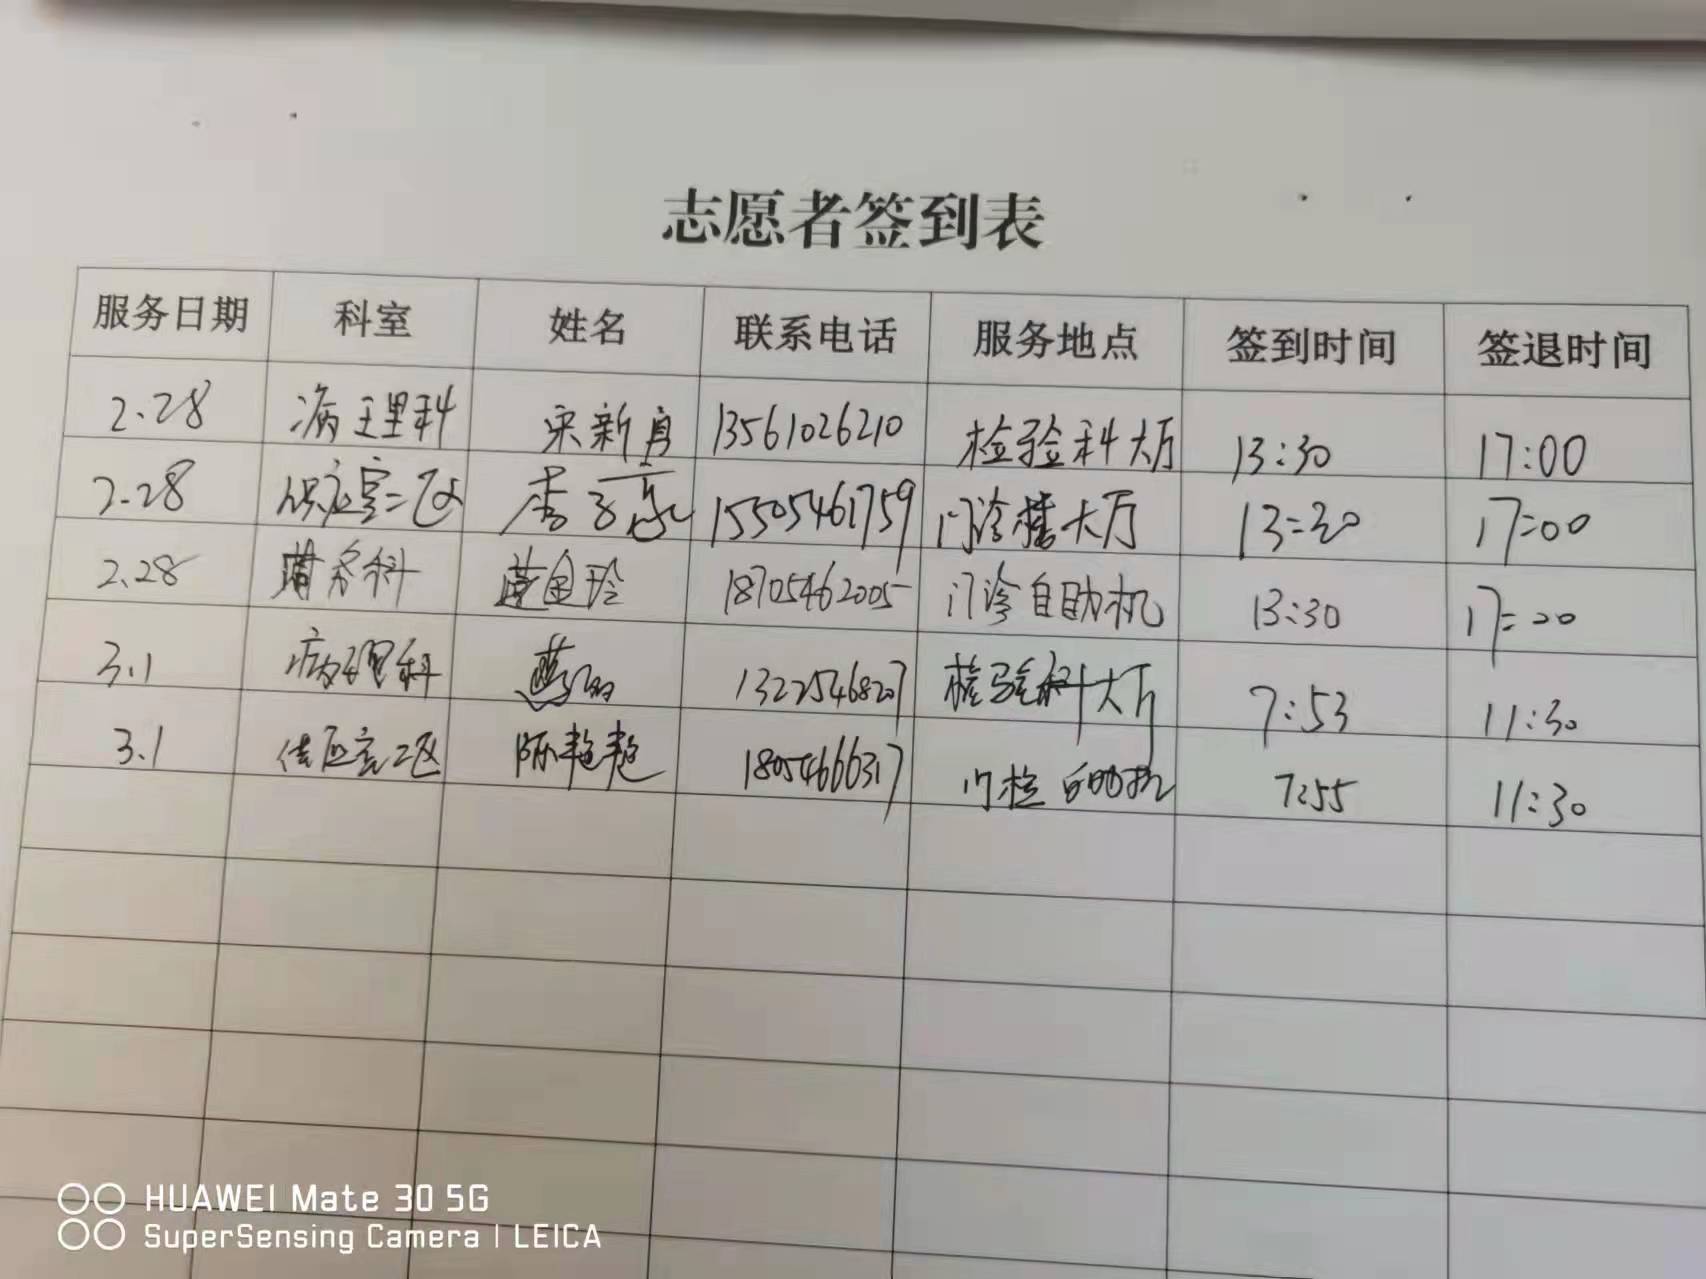 志愿者签到表
服务日期 科室 姓名 联系电话 服务地点 签到时间 签退时间
2.28 病理科 宋新 13561026210 检验科大厅 13:30 17:00
2.28 供应室二区 李 15505461759 门诊楼大厅 13:30 17:00
2.28 科 玲 18705462005 门诊自助机 13:30 17:00
3.1 病理科 13225468207 检验科大厅 7:53 11:30
3.1 供应室二区 陈艳艳 18054666317 门诊自助机 7:55 11:30
HUAWEI Mate 30 5G
SuperSensing Camera | LEICA